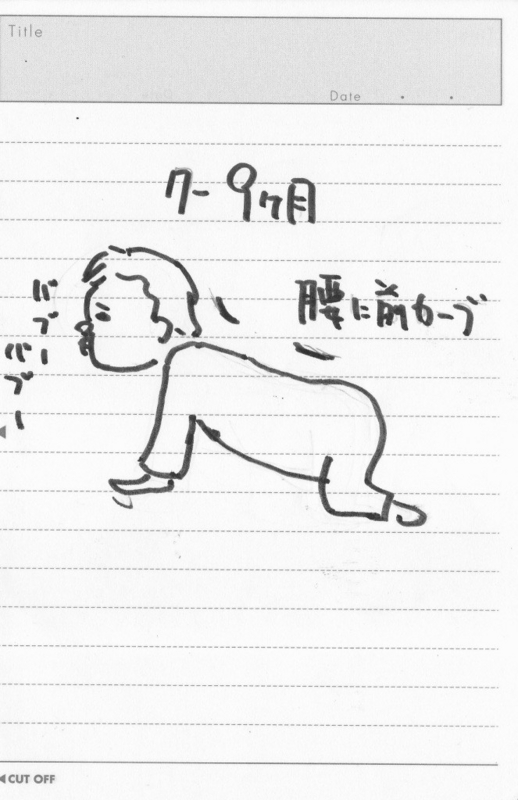 Title
Date . .
7-9ヶ月
腰に前カーブ
バブー
バブー
◀CUT OFF